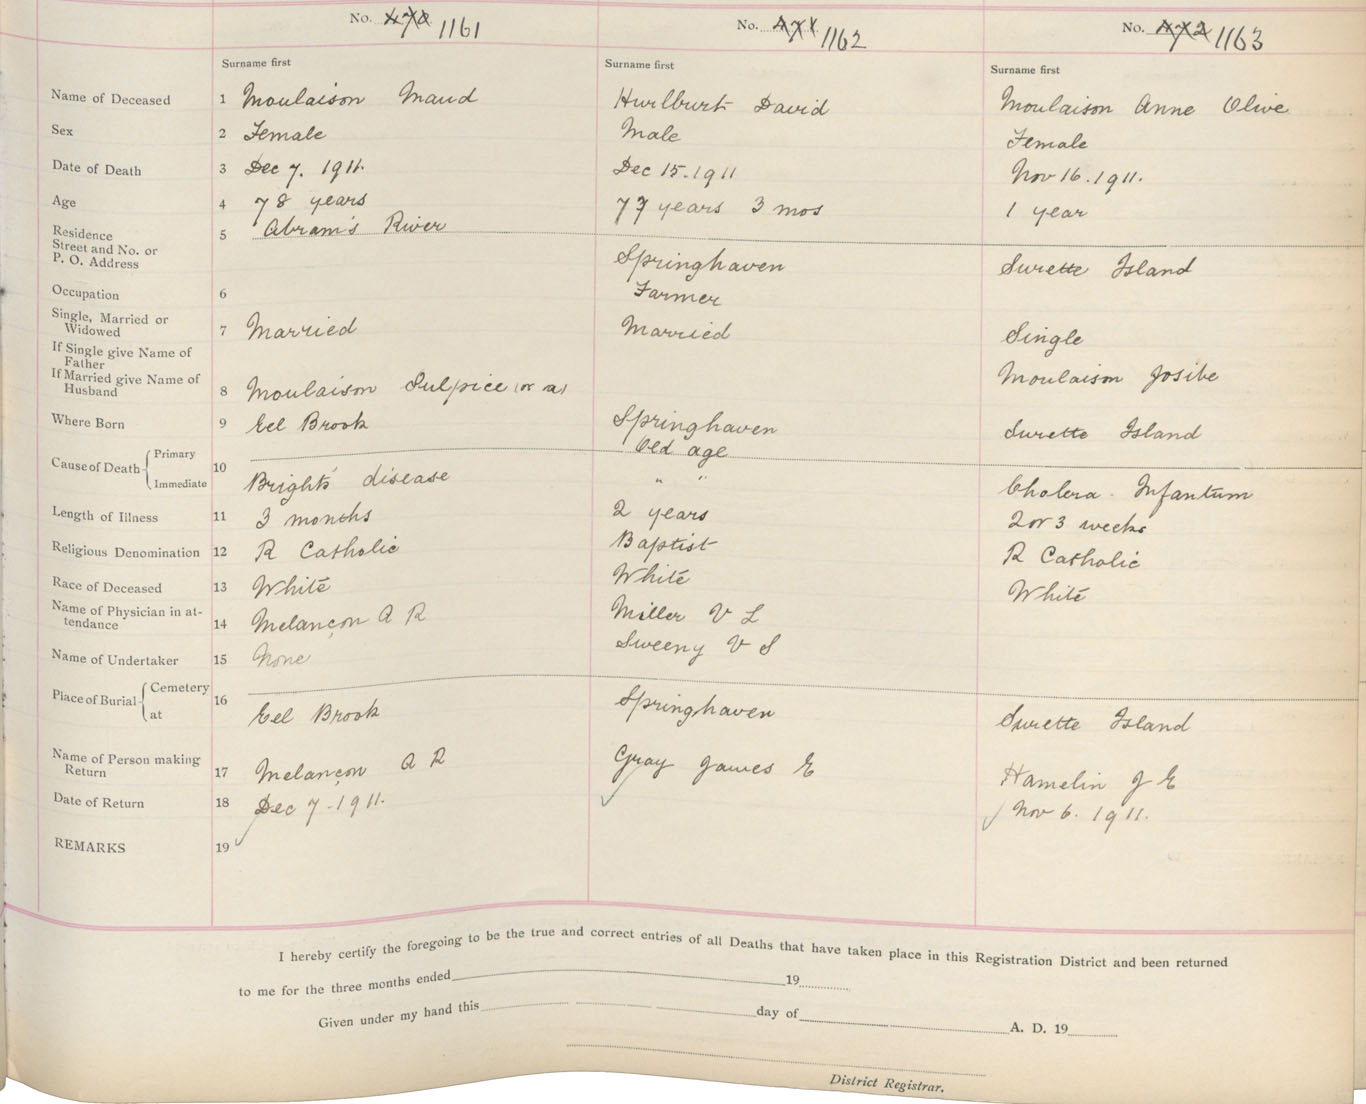 No. 470 1161 No. 471 1162 No. 472 1163
Surname first Surname first Surname first
Name of Deceased 1 Moulaison Maud Hurlburt David Moulaison Anne Olive
Sex 2 Female Male Female
Date of Death 3 Dec 7. 1911. Dec 15-1911 Nov 16.1911.
Age 4 78 years 77 years 3 mos 1 year
Residence
Street and No. or
P. O. Address 5 Abram's River Springhaven Surette Island
Occupation 6 Farmer
Single, Married or
Widowed 7 Married Married Single
If Single give Name of
Father
If Married give Name of
Husband 8 Moulaison Sulpice (or a) Moulaison Josibe
Where Born 9 Eel Brook Springhaven Surette Island
Cause of Death Primary 10 Old age
Immediate Bright's disease " " Cholera Infantum
Length of Illness 11 3 months 2 years 2 or 3 weeks
Religious Denomination 12 R Catholic Baptist R Catholic
Race of Deceased 13 White White White
Name of Physician in at-
tendance 14 Melançon A R Miller V L
Name of Undertaker 15 None Sweeny V S
Place of Burial Cemetery 16
at Eel Brook Springhaven Surette Island
Name of Person making
Return 17 Melançon A R Gray James E Hamelin J E
Date of Return 18 Dec 7-1911. Nov 6. 1911.
REMARKS 19
I hereby certify the foregoing to be the true and correct entries of all Deaths that have taken place in this Registration District and been returned
to me for the three months ended 19
Given under my hand this day of A. D. 19
District Registrar.